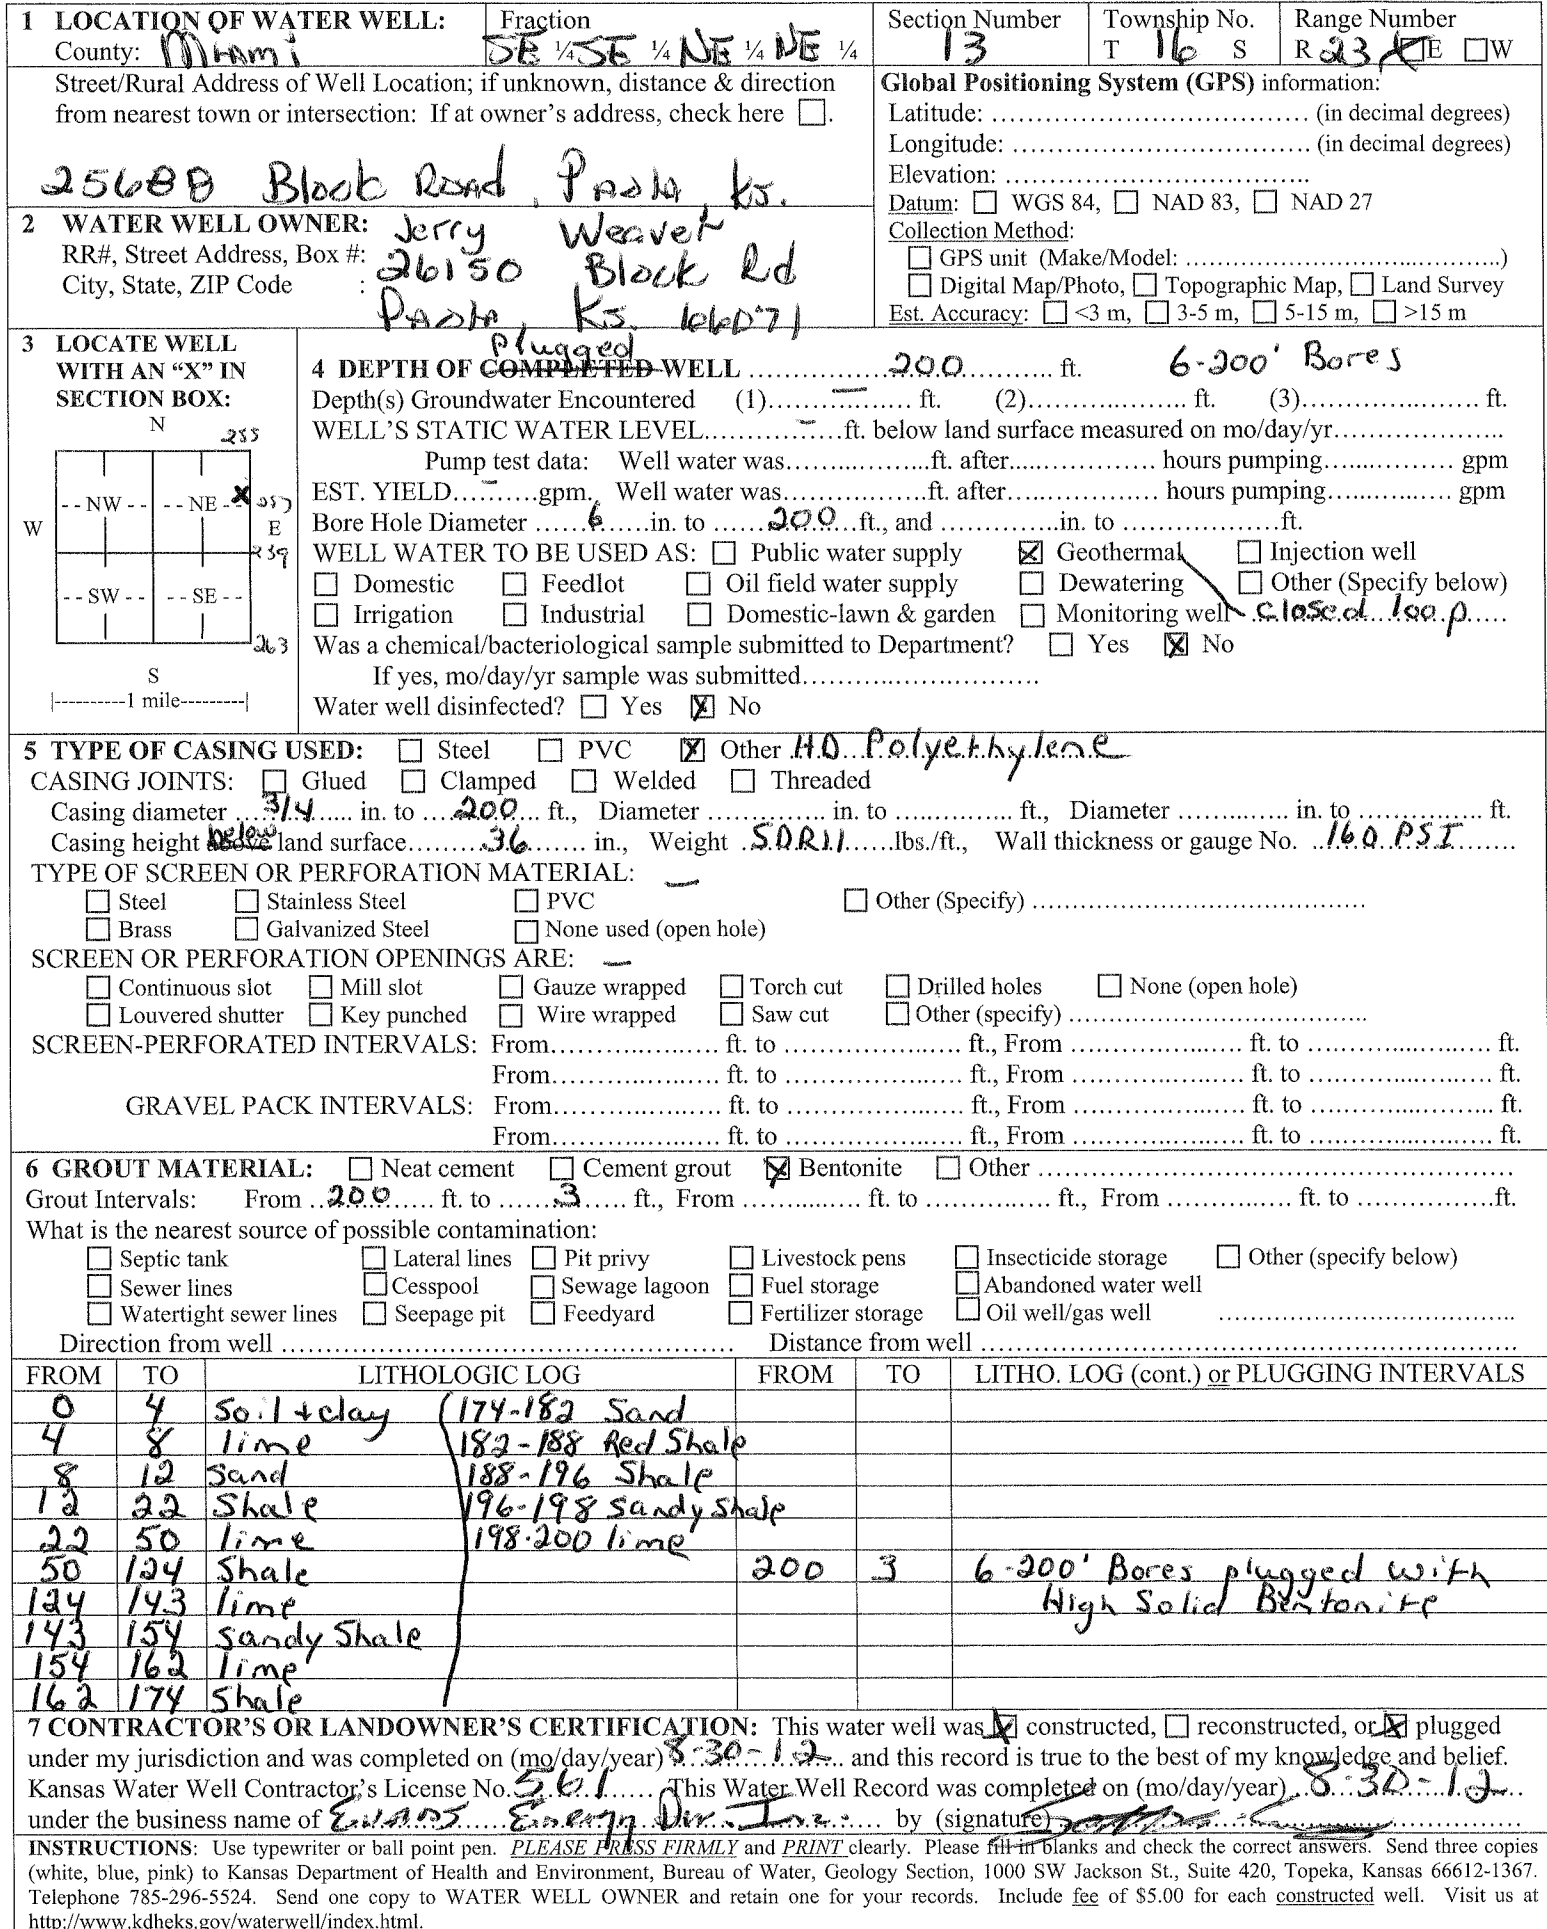 1 LOCATION OF WATER WELL: Fraction Section Number Township No. Range Number
County: Miami SE ¼ SE ¼ NE ¼ NE ¼ 13 T 16 S R 23 ☒E ☐W
Street/Rural Address of Well Location; if unknown, distance & direction
from nearest town or intersection: If at owner's address, check here ☐.
25688 Block Road, Paola, Ks.
Global Positioning System (GPS) information:
Latitude: .......... (in decimal degrees)
Longitude: .......... (in decimal degrees)
Elevation: ..........
Datum: ☐ WGS 84, ☐ NAD 83, ☐ NAD 27
Collection Method:
☐ GPS unit (Make/Model: ..........)
☐ Digital Map/Photo, ☐ Topographic Map, ☐ Land Survey
Est. Accuracy: ☐ <3 m, ☐ 3-5 m, ☐ 5-15 m, ☐ >15 m
2 WATER WELL OWNER: Jerry Weaver
RR#, Street Address, Box #: 26150 Block Rd
City, State, ZIP Code : Paola, Ks. 66071
3 LOCATE WELL
WITH AN "X" IN
SECTION BOX:
N 255
--NW-- --NE-- X 257
W E
239
--SW-- --SE--
263
S
|----------1 mile---------|
Plugged
4 DEPTH OF COMPLETED WELL ..........200.......... ft. 6-200' Bores
Depth(s) Groundwater Encountered (1)....—.... ft. (2).......... ft. (3).......... ft.
WELL'S STATIC WATER LEVEL....–....ft. below land surface measured on mo/day/yr..........
Pump test data: Well water was..........ft. after.......... hours pumping.......... gpm
EST. YIELD....–....gpm. Well water was..........ft. after.......... hours pumping.......... gpm
Bore Hole Diameter .....6.....in. to .....200.....ft., and ..........in. to ..........ft.
WELL WATER TO BE USED AS: ☐ Public water supply ☒ Geothermal ☐ Injection well
☐ Domestic ☐ Feedlot ☐ Oil field water supply ☐ Dewatering ☐ Other (Specify below)
☐ Irrigation ☐ Industrial ☐ Domestic-lawn & garden ☐ Monitoring well closed loop
Was a chemical/bacteriological sample submitted to Department? ☐ Yes ☒ No
If yes, mo/day/yr sample was submitted..........
Water well disinfected? ☐ Yes ☒ No
5 TYPE OF CASING USED: ☐ Steel ☐ PVC ☒ Other H.D. Polyethylene
CASING JOINTS: ☐ Glued ☐ Clamped ☐ Welded ☐ Threaded
Casing diameter ....3/4..... in. to ....200... ft., Diameter .......... in. to .......... ft., Diameter .......... in. to .......... ft.
Casing height below above land surface.....36..... in., Weight .SDR11.....lbs./ft., Wall thickness or gauge No. ..160 PSI......
TYPE OF SCREEN OR PERFORATION MATERIAL: —
☐ Steel ☐ Stainless Steel ☐ PVC ☐ Other (Specify) ..........
☐ Brass ☐ Galvanized Steel ☐ None used (open hole)
SCREEN OR PERFORATION OPENINGS ARE: —
☐ Continuous slot ☐ Mill slot ☐ Gauze wrapped ☐ Torch cut ☐ Drilled holes ☐ None (open hole)
☐ Louvered shutter ☐ Key punched ☐ Wire wrapped ☐ Saw cut ☐ Other (specify) ..........
SCREEN-PERFORATED INTERVALS: From.......... ft. to .......... ft., From .......... ft. to .......... ft.
From.......... ft. to .......... ft., From .......... ft. to .......... ft.
GRAVEL PACK INTERVALS: From.......... ft. to .......... ft., From .......... ft. to .......... ft.
From.......... ft. to .......... ft., From .......... ft. to .......... ft.
6 GROUT MATERIAL: ☐ Neat cement ☐ Cement grout ☒ Bentonite ☐ Other ..........
Grout Intervals: From ..200..... ft. to .....3..... ft., From .......... ft. to .......... ft., From .......... ft. to ..........ft.
What is the nearest source of possible contamination:
☐ Septic tank ☐ Lateral lines ☐ Pit privy ☐ Livestock pens ☐ Insecticide storage ☐ Other (specify below)
☐ Sewer lines ☐ Cesspool ☐ Sewage lagoon ☐ Fuel storage ☐ Abandoned water well
☐ Watertight sewer lines ☐ Seepage pit ☐ Feedyard ☐ Fertilizer storage ☐ Oil well/gas well ..........
Direction from well .......... Distance from well ..........
FROM TO LITHOLOGIC LOG FROM TO LITHO. LOG (cont.) or PLUGGING INTERVALS
0 4 Soil + clay (174-182 Sand
4 8 lime 182-188 Red Shale
8 12 Sand 188-196 Shale
12 22 Shale 196-198 Sandy Shale
22 50 lime 198-200 lime
50 124 Shale 200 3 6-200' Bores plugged with
124 143 lime High Solid Bentonite
143 154 Sandy Shale
154 162 lime
162 174 Shale
7 CONTRACTOR'S OR LANDOWNER'S CERTIFICATION: This water well was ☒ constructed, ☐ reconstructed, or ☒ plugged
under my jurisdiction and was completed on (mo/day/year) 8-30-12 and this record is true to the best of my knowledge and belief.
Kansas Water Well Contractor's License No. 561 This Water Well Record was completed on (mo/day/year) 8-30-12
under the business name of Evans Energy Dev. Inc. by (signature)
INSTRUCTIONS: Use typewriter or ball point pen. PLEASE PRESS FIRMLY and PRINT clearly. Please fill in blanks and check the correct answers. Send three copies
(white, blue, pink) to Kansas Department of Health and Environment, Bureau of Water, Geology Section, 1000 SW Jackson St., Suite 420, Topeka, Kansas 66612-1367.
Telephone 785-296-5524. Send one copy to WATER WELL OWNER and retain one for your records. Include fee of $5.00 for each constructed well. Visit us at
http://www.kdheks.gov/waterwell/index.html.